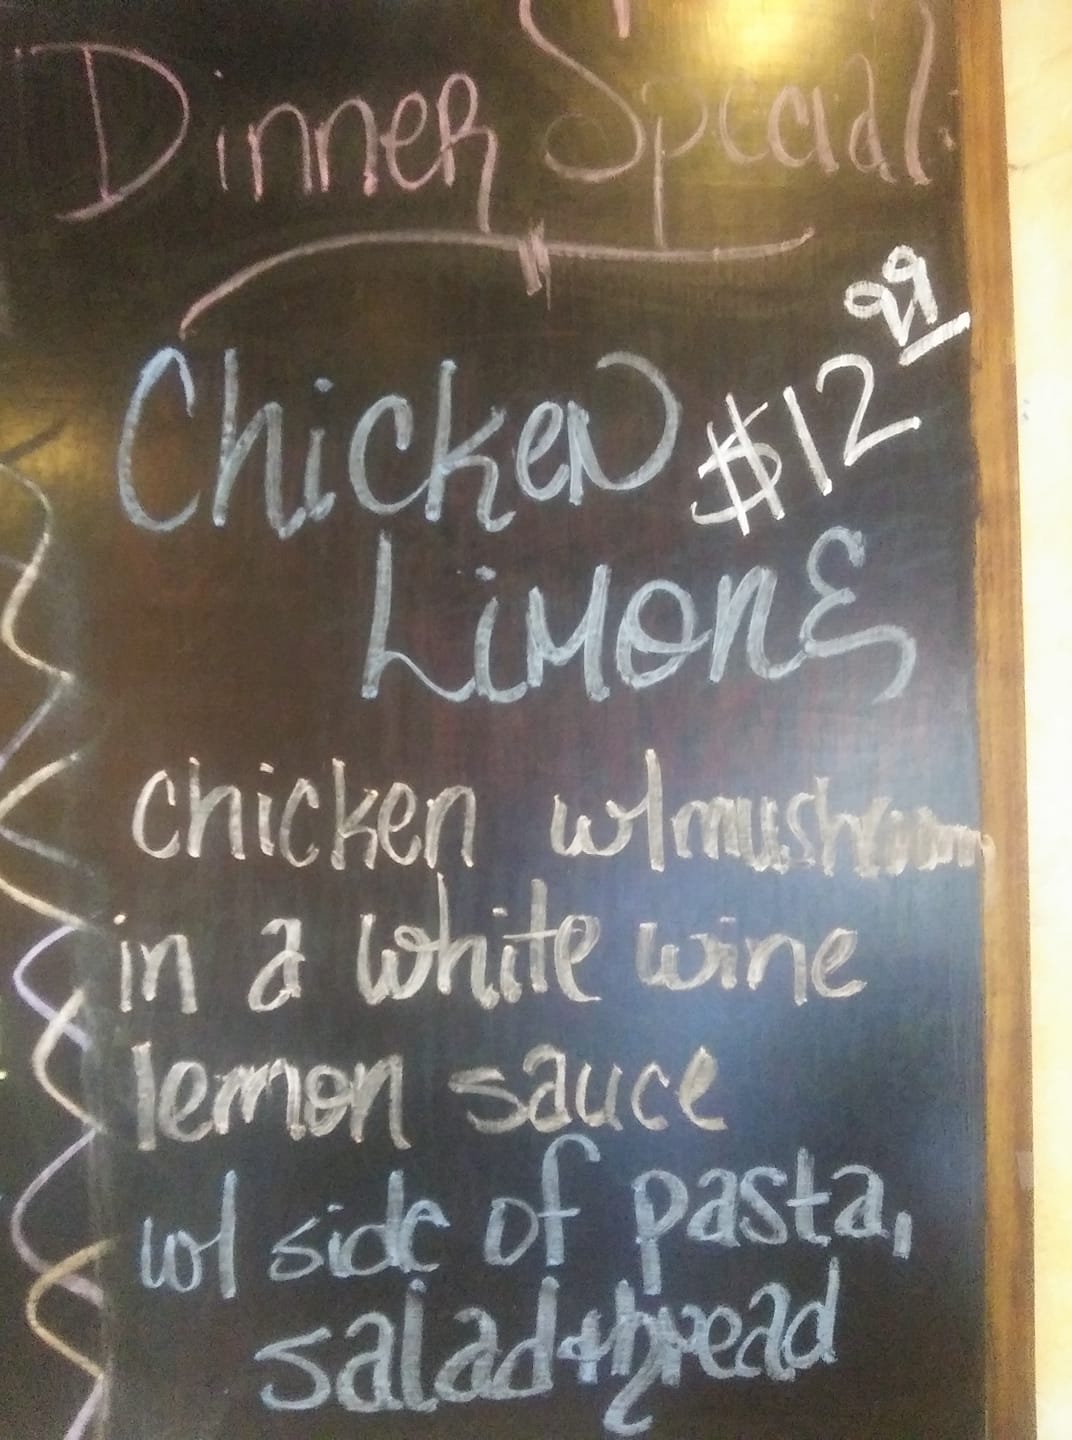 Dinner Special:
Chicken $12.99
Limone
chicken w/mushroom
in a white wine
lemon sauce
w/ side of pasta,
salad + bread